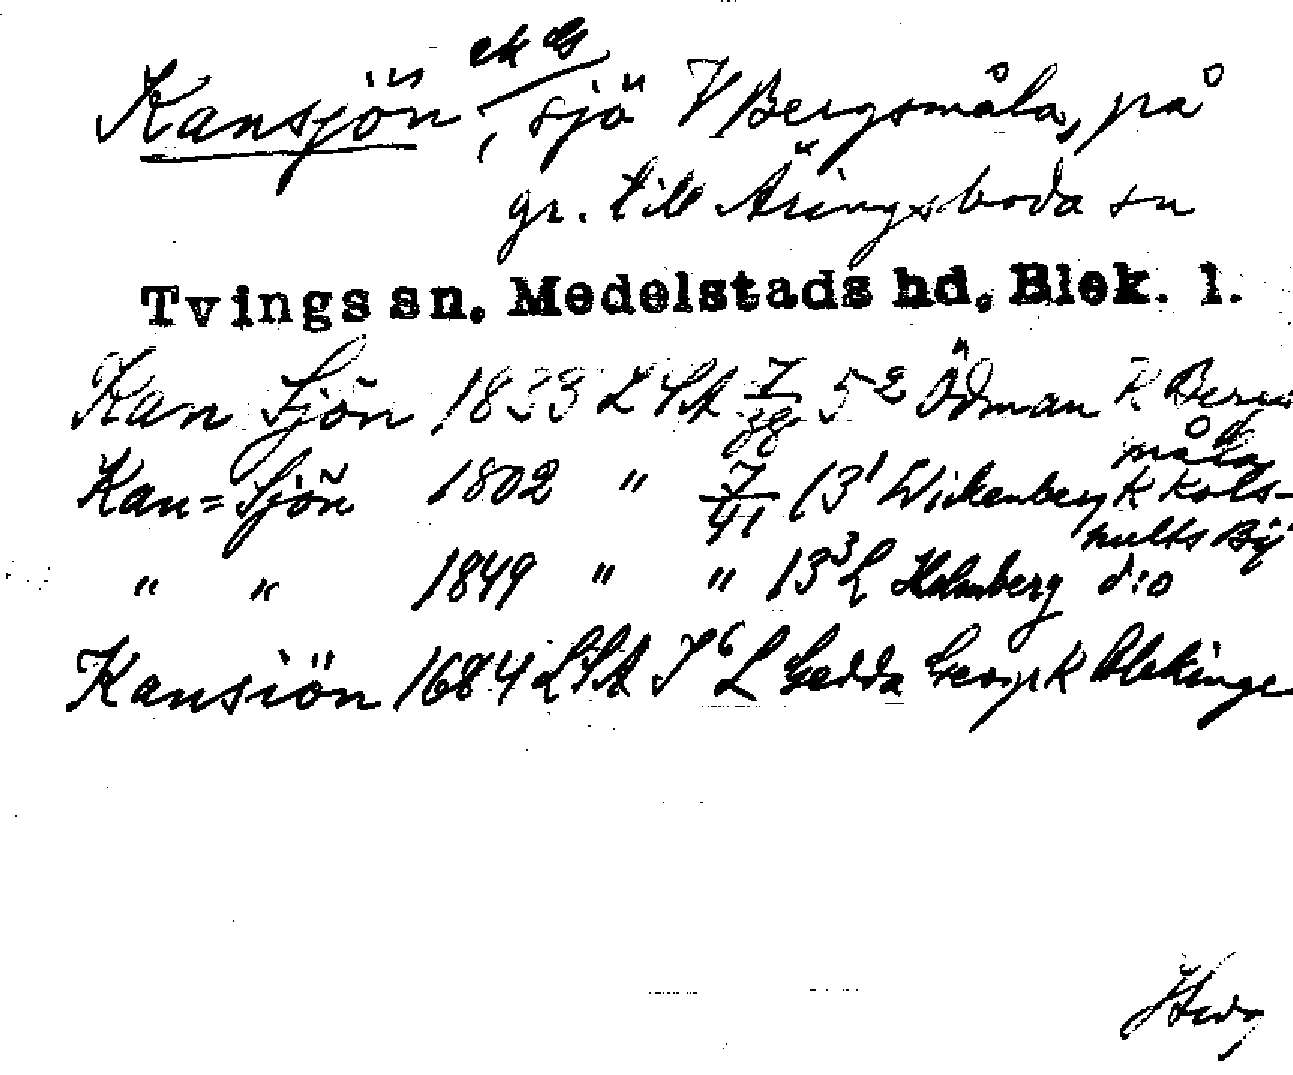 ek G
Kansjön, sjö V Bergsmåla, på
gr. till Äringsboda sn
Tvings sn. Medelstads hd. Blek. l.
Kan Sjön 1833 LSA 7/38 5² Ödman K Bergs
måla
Kan=Sjön 1802 " 7/41 13¹ Wickenberg K Kols-
hults By
" " 1849 " " 13³ L Holmberg d:o
Kansiön 1684 LSA I⁶ L Gedda Geogr K Blekinge